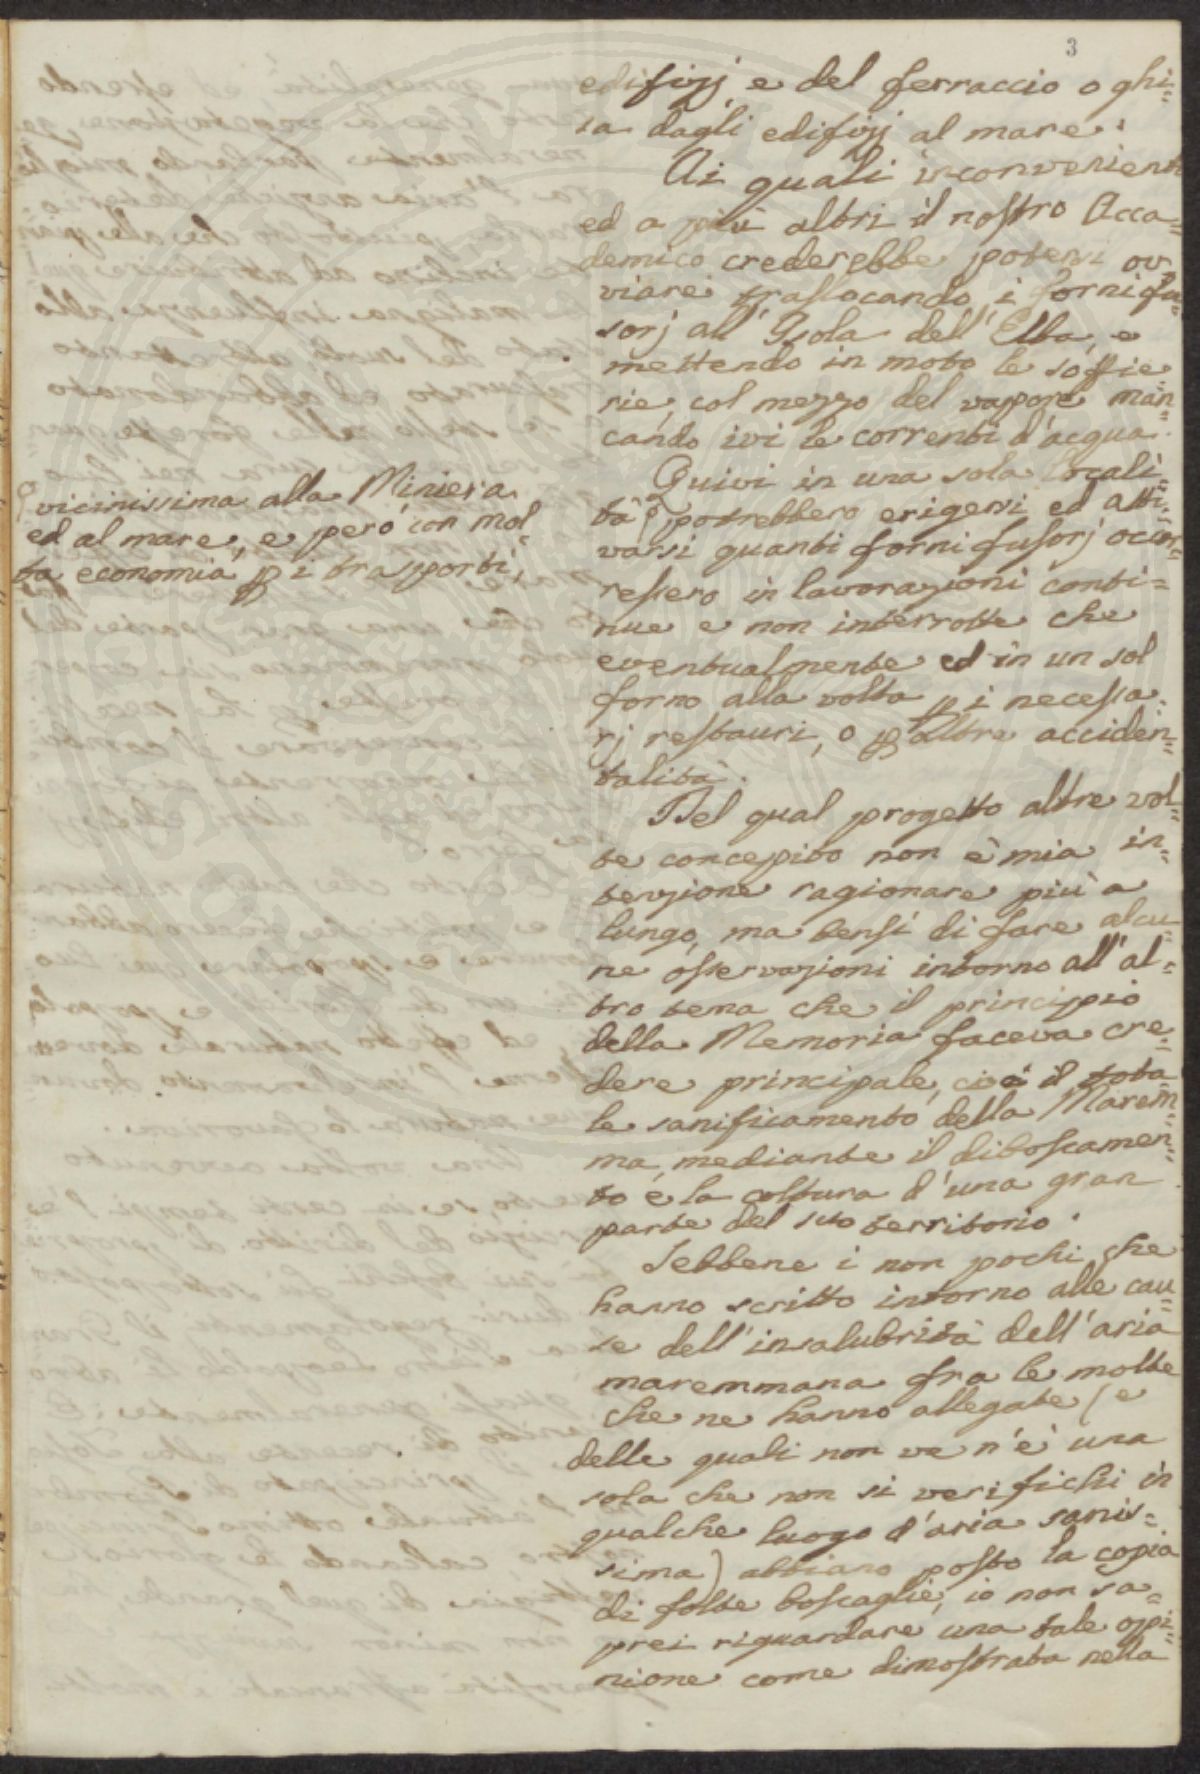 3
edifizj e del ferraccio o ghi=
sa dagli edifizj al mare.
Ai quali inconvenienti
ed a più altri il nostro Acca=
demico crederebbe potersi ov
viare traslocando i forni fu=
sorj all'Isola dell'Elba, e
mettendo in moto le soffie
rie col mezzo del vapore man=
cando ivi le correnti d'acqua.
Quivi in una sola locali
tà potrebbero erigersi ed atti=
varsi quanti forni fusorj occor=
ressero in lavorazioni conti=
nue e non interrotte che
eventualmente ed in un sol
forno alla volta p i necessa=
rj restauri, o p altre acciden=
talità.
Del qual progetto altre vol=
te concepito non è mia in=
tenzione ragionare più a
lungo, ma bensì di fare alcu=
ne osservazioni intorno all'al=
tro tema che il principio
della Memoria faceva cre=
dere principale, cioè il tota=
le sanificamento della Marem=
ma, mediante il diboscamen=
to e la coltura d'una gran
parte del suo territorio.
Sebbene i non pochi che
hanno scritto intorno alle cau=
se dell'insalubrità dell'aria
maremmana fra le molte
che ne hanno allegate (e
delle quali non ve n'è una
sola che non si verifichi in
qualche luogo d'aria sanis=
sima) abbiano posto la copia
di folte boscaglie, io non sa=
prei riguardare una tale opi=
nione come dimostrata nella
vicinissima alla Miniera
ed al mare, e però con mol=
ta economia p i trasporti,